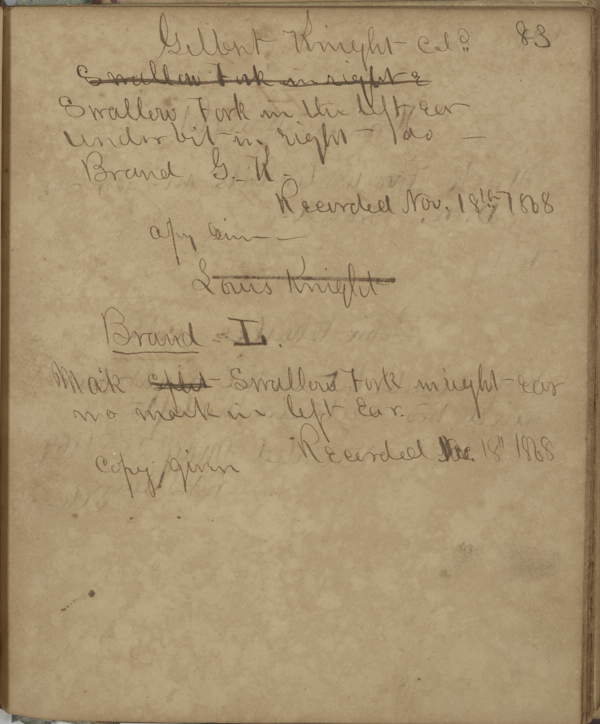 Gilbert Knight cld 83
Swallow Fork in right e
Swallow Fork in the left ear
under bit in right do —
Brand G. K.
Recorded Nov. 18th 1868
copy given —
Louis Knight
Brand = L.
Mark split Swallow Fork in right ear
no mark in left Ear.
Recorded 18" 1868
copy given